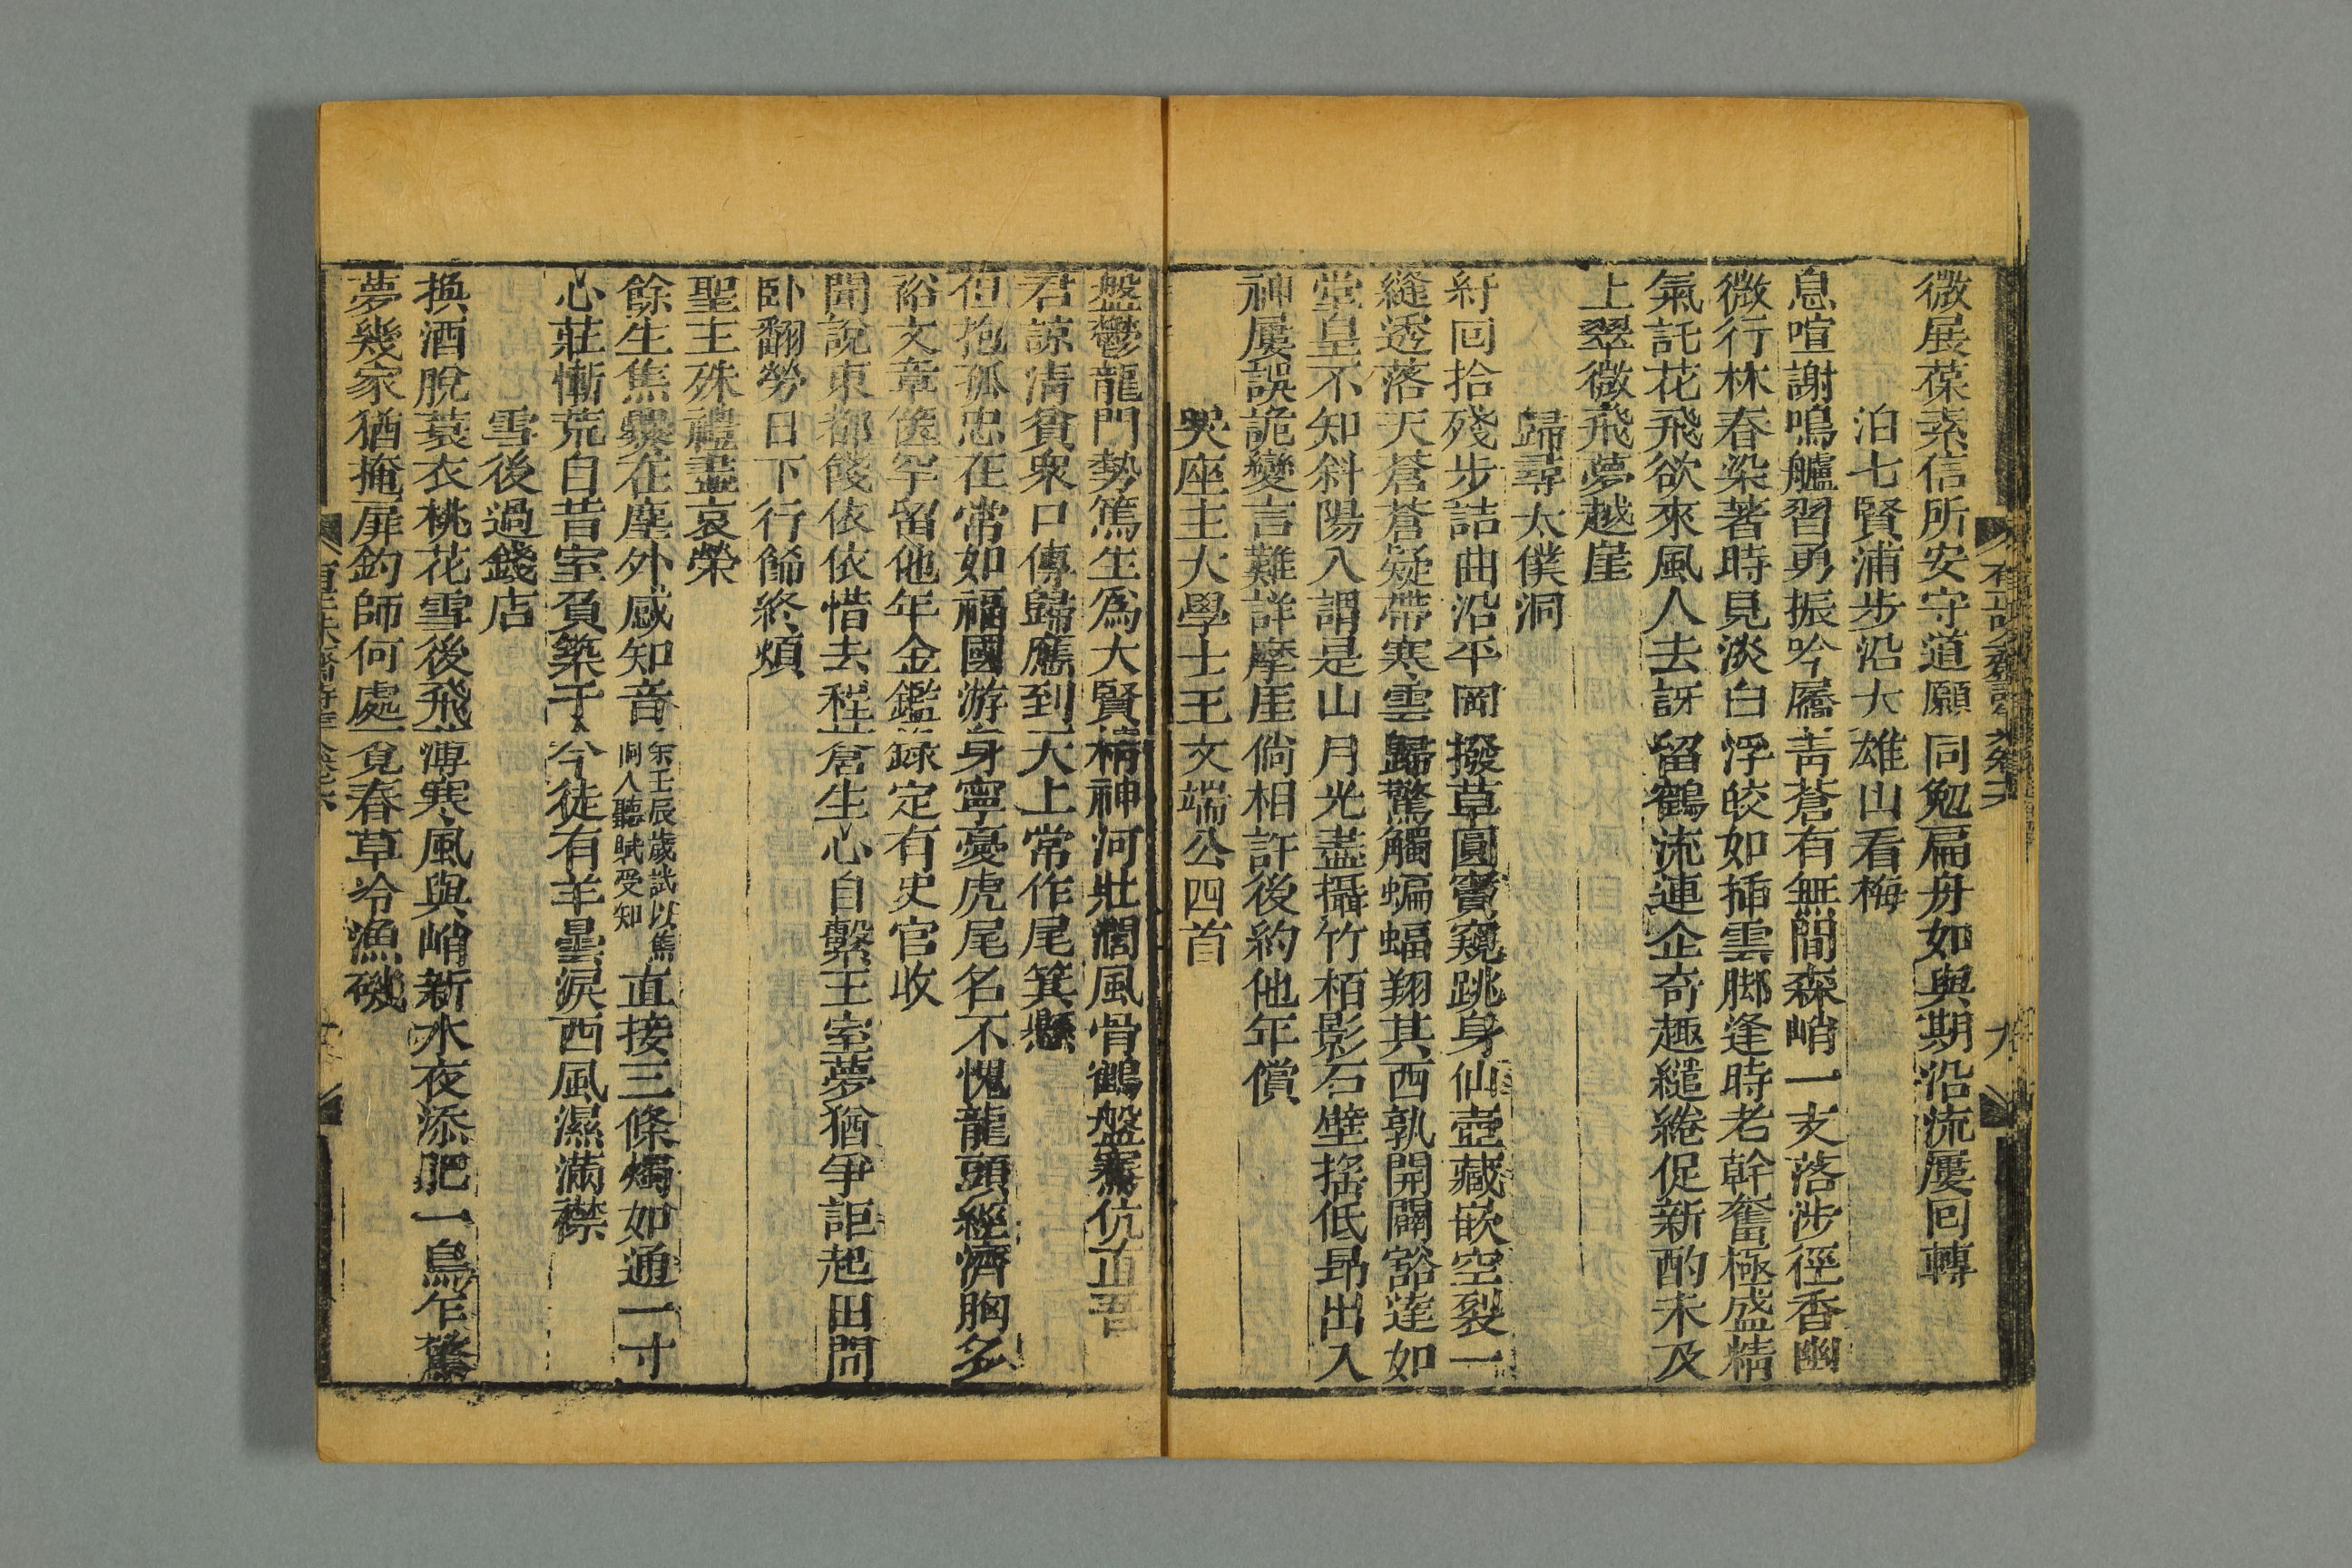 微展葆素信所安守道願同勉扁舟如與期沿流屢回轉
泊七賢浦步沿大雄山看梅
息喧謝鳴艫習勇振吟屩靑蒼有無間森峭一支落涉徑香幽
微行林春染著時見淡白浮皎如揷雲腳逢時老幹奮極盛精
氣託花飛欲來風人去訝留鶴流連企奇趣繾綣促新酌未及
上翠微飛夢越崖
歸尋太僕洞
紆回拾殘步詰曲沿平岡撥草圓竇窺跳身仙壺藏嵌空裂一
縫透落天蒼蒼疑帶寒雲歸驚觸蝙蝠翔其西孰開闢豁達如
堂皇不知斜陽入謂是山月光盡攝竹栢影石壁搖低昻出入
神屢誤詭變言難詳摩厓倘相許後約他年償
哭座主大學士王文端公四首
盤鬱龍門勢篤生爲大賢精神河壯濶風骨鶴盤騫伉直吾
君諒淸貧衆口傳歸鷹到天上常作尾箕懸
伯抱孤忠在常如福國游身寧憂虎尾名不愧龍頭經濟胸多
裕文章篋罕留他年金鑑錄定有史官收
聞說東都餞依依惜去程蒼生心自繫王室夢猶爭詎起田間
臥翻勞日下行飾終煩
聖主殊禮盡哀榮
餘生焦爨在塵外感知音余壬辰歲試以焦桐入聽賦受知直接三條燭如通一寸
心莊慚荒白昔室負築于今徒有羊曇淚西風濕滿襟
雪後過錢店
換酒脫蓑衣桃花雪後飛薄寒風與峭新水夜添肥一鳥乍驚
夢幾家猶掩扉釣師何處覓春草冷漁磯